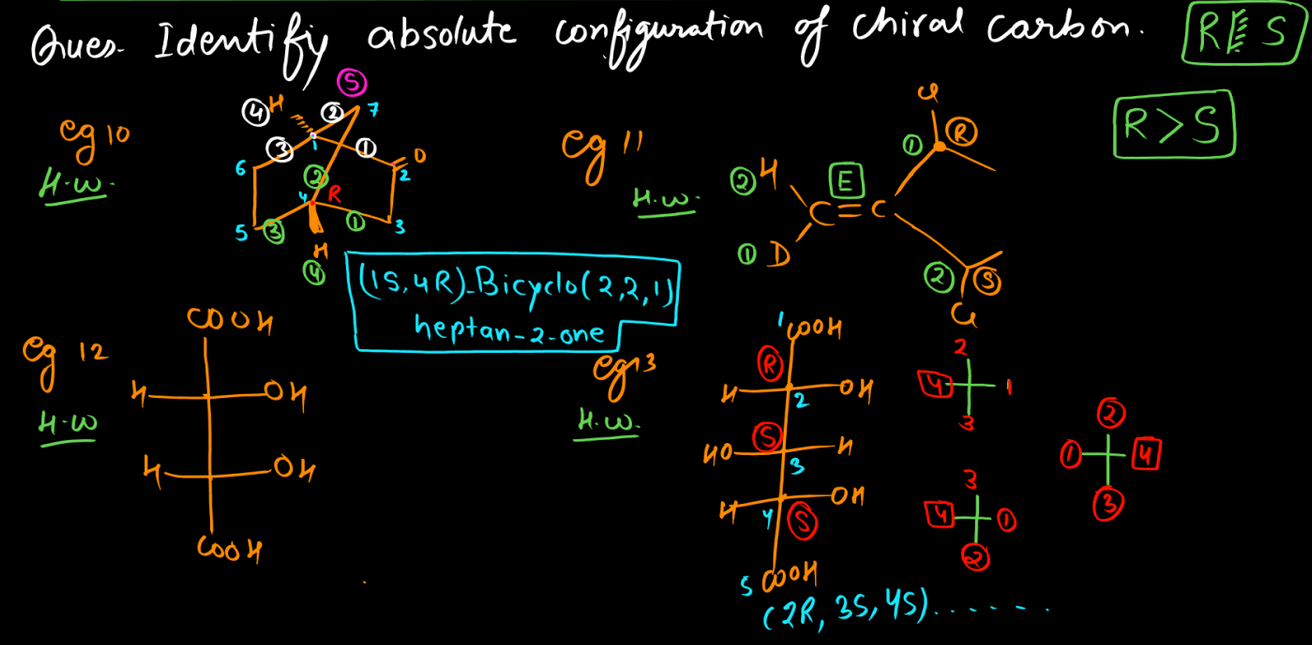 Ques. Identify absolute configuration of chiral carbon.
R S
R > S
eg 10
H.W.
S
4 H 2 7
3 1 1 O
6 2 2
4 R
5 3 1 3
H
4
(1S,4R)-Bicyclo(2,2,1)
heptan-2-one
eg 11
H.W.
Cl
1 R
2 H E
C=C
1 D
2 S
Cl
eg 12
H.W
COOH
H OH
H OH
COOH
eg 13
H.W.
1 COOH
R
H OH
2
S
HO H
3
H OH
4 S
5 COOH
(2R, 3S, 4S).......
2
4 1
3
3
4 1
2
2
1 4
3